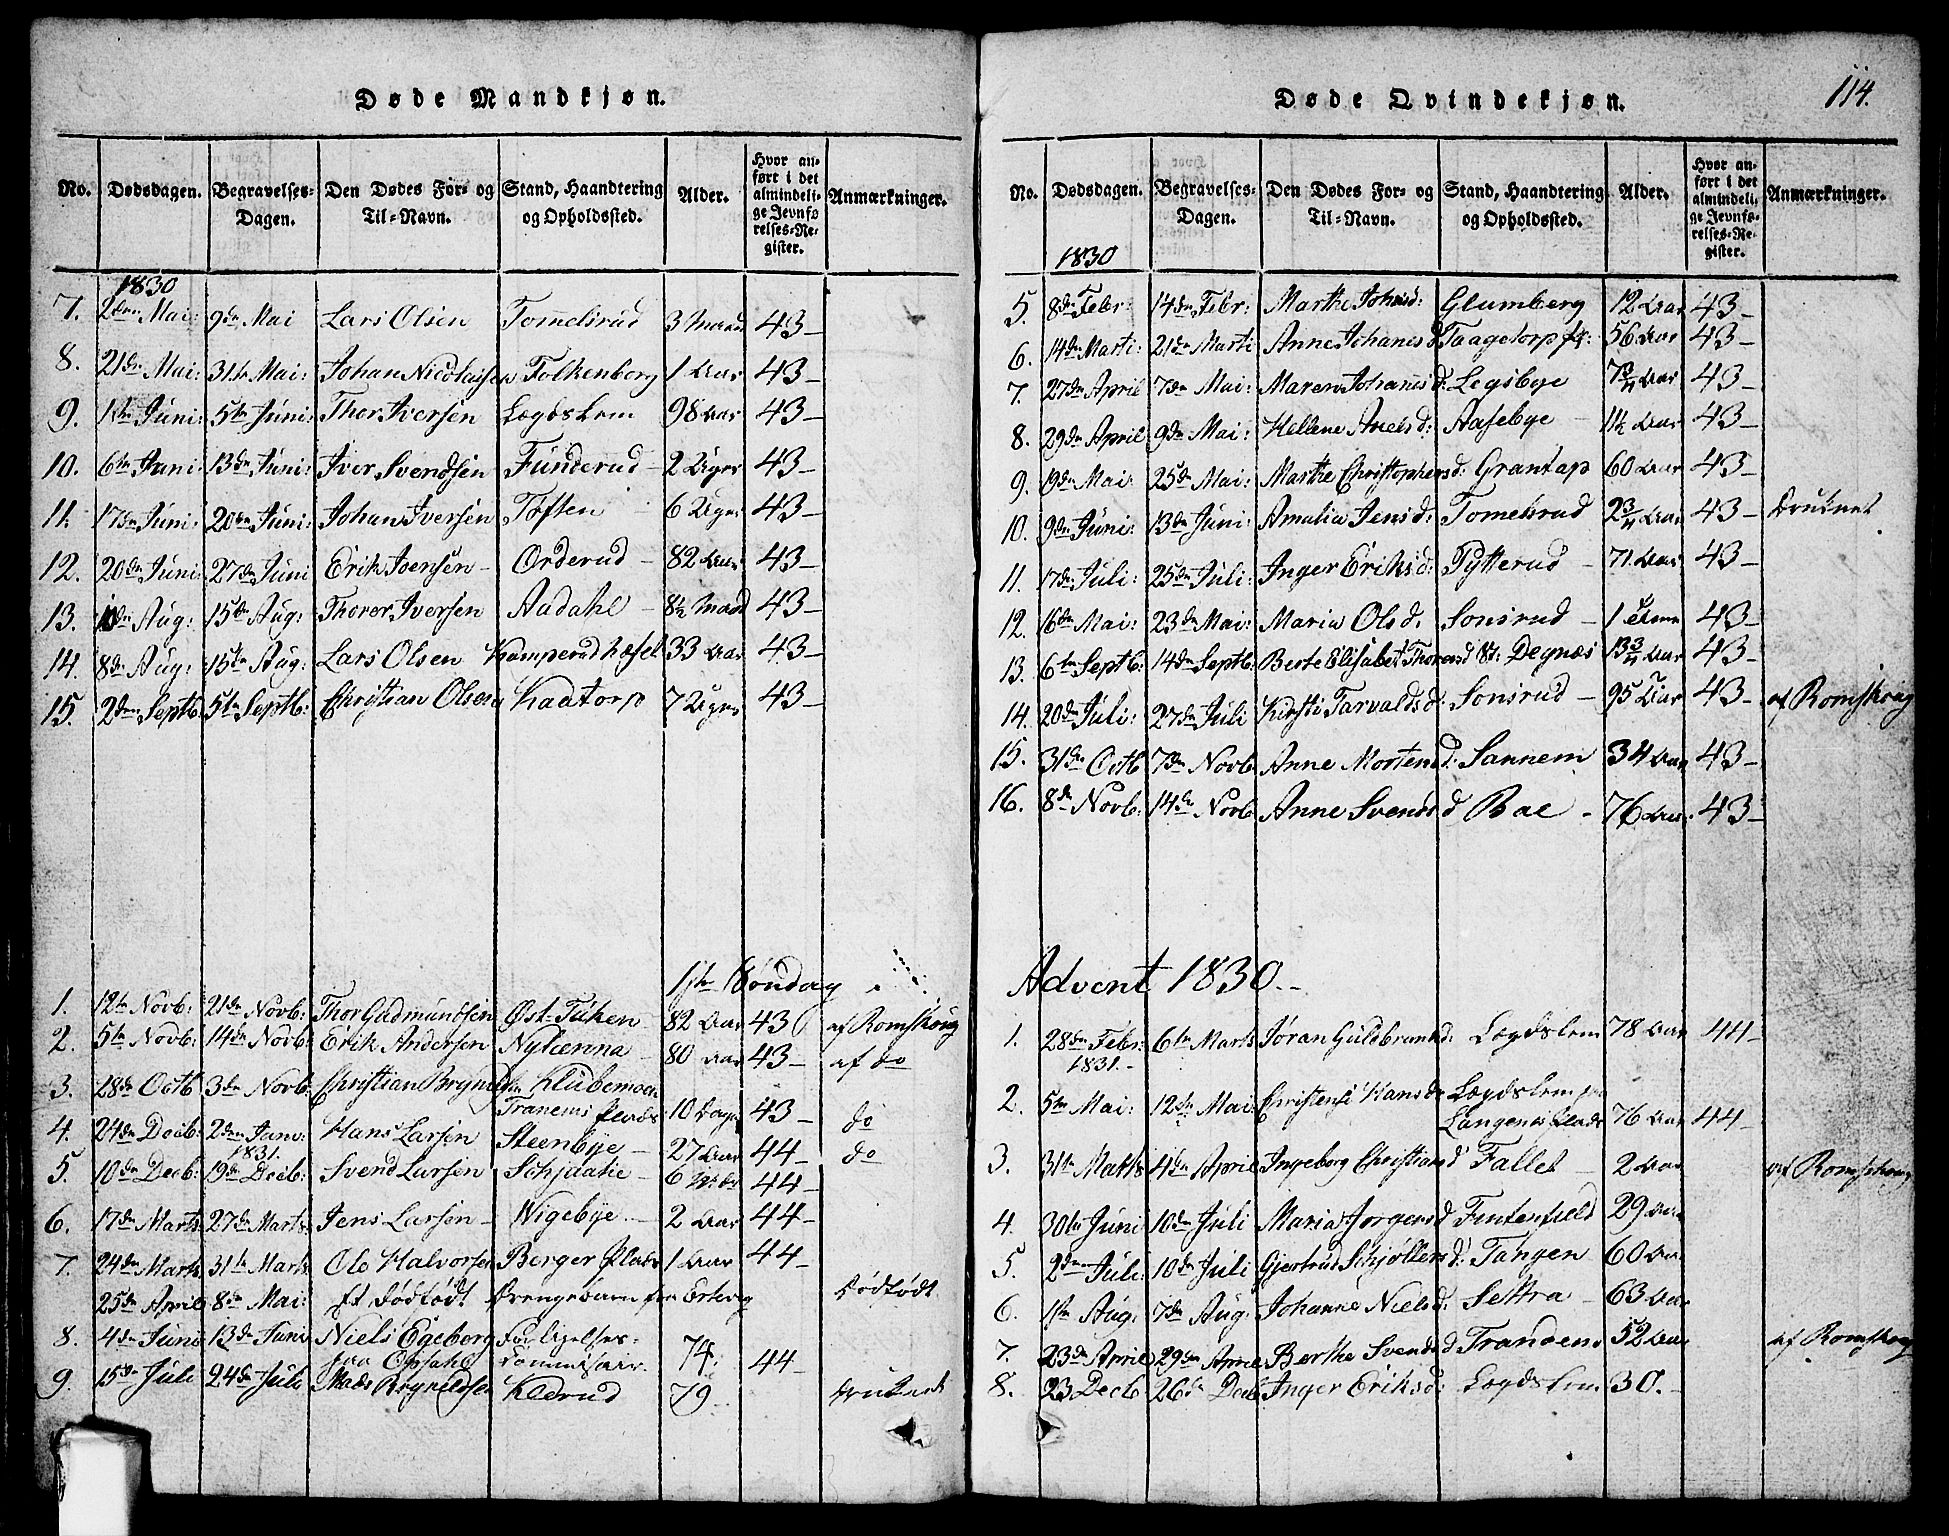 Døde Mandkjøn.
No. Dødsdagen. Begravelses-Dagen. Den Dødes For- og Til-Navn. Stand, Haandtering og Opholdssted. Alder. Hvor anført i det almindelige Jevnførelses-Register. Anmærkninger.
1830
7. 2den Mai: 9de Mai Lars Olsen Tomelsrud 3 Maan 43-
8. 21de Mai: 31te Mai: Johan Nicolaisen Folkenborg 1 Aar 43-
9. 1ste Juni: 5te Juni: Thor Iversen Lægdslem 98 Aar 43-
10. 6te Juni: 13de Juni: Iver Svendsen Funderud - 2 Uger 43-
11. 17de Juni: 20de Juni: Johan Iversen Toften - 6 Uger 43-
12. 20de Juni: 27de Juni Erik Ivensen - Orderud - 82 Aar 43-
13. Aug: 15de Aug: Thorer Iversen Aadahl - 8½ Maad 43-
14. 8de Aug: 15de Aug: Lars Olsen Kamperud 33 Aar 43-
15. 2den Septb: 5te Septb: Christian Olsen Kaatorp 7 Uger 43-
1ste Søndag i
1. 12te Novb: 21de Novb: Thor Gudmundsen Øst-Tuken 82 Aar 43 af Romskoug
2. 5te Novb: 14de Novb: Erik Andersen Nylænna - 80 Aar 43- af do
3. 28de Octb 3de Novb: Christian Brynilds. Klubemoen
Tranems Plads 10 Dage 43- do
4. 24de Decb: 2den Janu: Hans Larsen Steenbye - 27 Aar 44- do
1831.
5. 10de Decb: 19de Decb: Svend Larsen 6 44-
6. 17de Marts 27de Marts: Jens Larsen - Vigebye - 2 Aar 44-
7. 24de Marts 31te Marts Ole Halvorsen Berger Plads 1 Aar 44-
25de April 8de Mai: Et dødfødt Drengebarn fra Dødfødt
8. 4de Juni 13de Juni Niels Egeborg Forligelses-
fra Opsahl Commisair. 74. 44-
9. 15de Juli 24de Juli Mads Brynildsen Kladrud 79.
Døde Qvindekjøn.
114.
No. Dødsdagen. Begravelses-Dagen. Den Dødes For- og Til-Navn. Stand, Haandtering og Opholdssted. Alder. Hvor anført i det almindelige Jevnførelses-Register. Anmærkninger.
1830
5. 8de Febr: 14de Febr: Marthe Johnsd: Glumberg 12 Aar 43-
6. 14de Marti: 21de Marti Anne Johannisd Taagetorp 56 Aar 43-
7. 27de April 7de Mai: Maren Johannisd: Legsbye 7¾ Aar 43-
8. 29de April 9de Mai: Hellene Axelsd: Aasebye - 1½ Aar 43-
9. 19de Mai: 25de Mai: Marthe Christophersd: Grantap 60 Aar 43-
10. 9de Juni: 13de Juni: Amalia Jensd: Tomelsrud 2¾ Aar 43- Druknet
11. 17de Juli: 25de Juli: Inger Eriksd: Pytterud - 71 Aar 43-
12. 16de Mai: 23de Mai: Maria Olsd: Sonsrud - 1 43-
13. 6te Septb: 14de Septb: Berte Elisabet Thoresd Degnæs 13¾ Aar 43-
14. 20de Juli: 27de Juli Kirsti Tarvaldsd: Sonsrud - 95 Aar 43- af Romskoug
15. 31de Octb 7de Novb. Anne Mortensd: Sannem 34 Aar 43-
16. 8de Novb: 14de Novb Anne Svensd Bae - 76 Aar 43-
Advent 1830.-
1. 28de Febr: 6te Marts Jøran Guldbrandsd: Lægdslem 78 Aar 44-
1831.-
2. 5te Mai: 12te Mai: Christense Hansdr Lægdslem
Langenæs Plads 76 Aar 44-
3. 31te Marts 4de April Ingeborg Christiansd Fallet - 2 Aar af Romskoug
4. 30te Juni 10de Juli Maria Jorgensd Fintenfield 29 Aar
5. 2den Juli: 10de Juli Gjertrud Schjøllersd: Tangen 60 Aar
6. 1ste Aug: 7de Aug: Johanne Nielsd: Settra - 63 Aar
7. 23de April 29de April Berthe Svensd Trandem 52 Aar af Romskoug
8. 23 Decb 26de Decb Inger Eriksd: Lægdslem 30.-